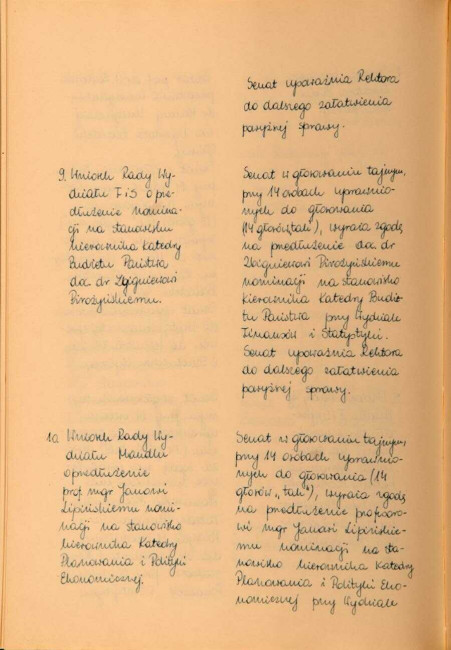 Senat upoważnia Rektora
do dalszego załatwienia
powyższej sprawy.
9. Wniosek Rady Wy-
działu F i S o prze-
dłużenie nomina-
cji na stanowisko
kierownika Katedry
Budżetu Państwa
doc. dr Zbigniewowi
Pirożyńskiemu.
Senat w głosowaniu tajnym,
przy 14 osobach uprawnio-
nych do głosowania
(14 głosów "tak"), wyraża zgodę
na przedłużenie doc. dr
Zbigniewowi Pirożyńskiemu
nominacji na stanowisko
kierownika Katedry Budże-
tu Państwa przy Wydziale
Finansów i Statystyki.
Senat upoważnia Rektora
do dalszego załatwienia
powyższej sprawy.
10. Wniosek Rady Wy-
działu Handlu
o przedłużenie
prof. mgr Janowi
Lipińskiemu nomi-
nacji na stanowisko
kierownika Katedry
Planowania i Polityki
Ekonomicznej.
Senat w głosowaniu tajnym,
przy 14 osobach uprawnio-
nych do głosowania (14
głosów „tak"), wyraża zgodę
na przedłużenie profesoro-
wi mgr Janowi Lipińskie-
mu nominacji na sta-
nowisko kierownika Katedry
Planowania i Polityki Eko-
nomicznej przy Wydziale